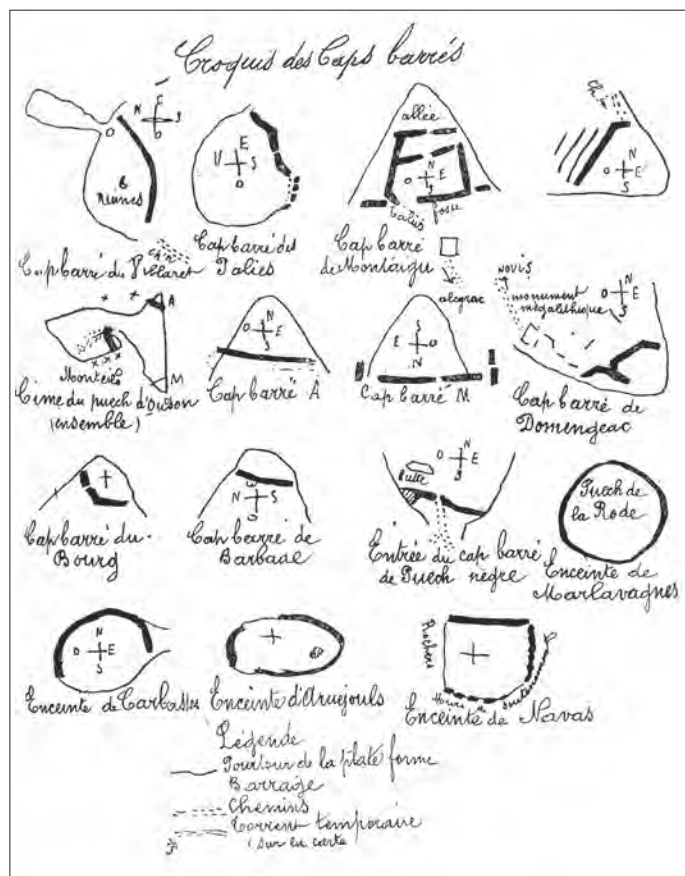 Croquis des Caps barrés
N E S O
Ruines
Cap barré du Villaret
E S O
Cap barré des
Palies
allée
N E S O
fosse
Cap barré
de Montaigu
alegrac
Ch
N E S O
A
M
Cime du puech d'
(ensemble)
N E S O
Cap barré A
S O N E
Cap barré M
monument
mégalithique
N E S O
Cap barré de
Domengeac
Cap barré du
Bourg
N E S O
Cap barré de
N E S O
Entrée du cap barré
de Puech nègre
Puech de
la Rode
Enceinte de
Marlavagnes
N E S O
Enceinte de
Enceinte d'
Rochers
Enceinte de Navas
Légende
Pourtour de la plate forme
Barrage
Chemins
Torrent temporaire
(sur la carte